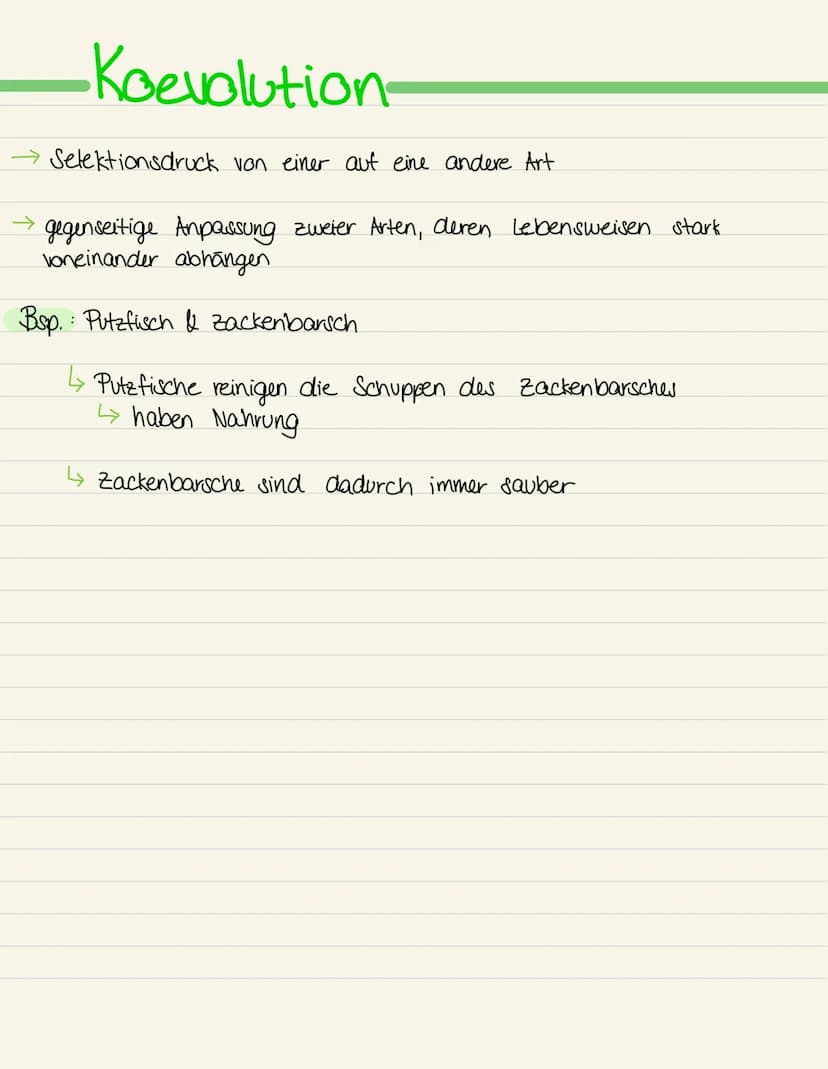 Koevolution
→ Selektionsdruck von einer auf eine andere Art
→ gegenseitige Anpassung zweier Arten, deren Lebensweisen stark
voneinander abhängen
Bsp.: Putzfisch & Zackenbarsch
↳ Putzfische reinigen die Schuppen des Zackenbarsches
↳ haben Nahrung
↳ Zackenbarsche sind dadurch immer sauber